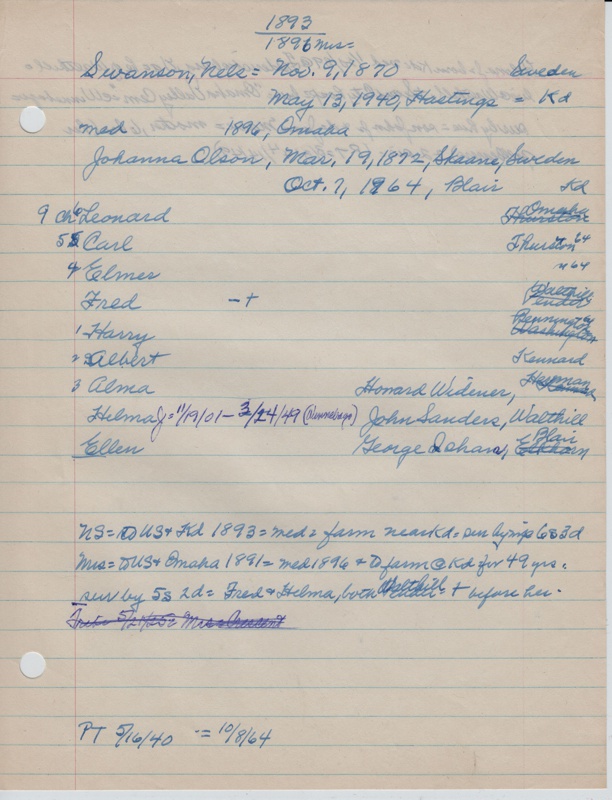 1893
1896 mrs=
Swanson, Nels = Nov. 9, 1870 Sweden
May 13, 1940, Hastings = Kd
med 1896, Omaha
Johanna Olson, Mar, 19, 1872, Skaane, Sweden
Oct. 7, 1964, Blair Kd
9 ch Leonard Omaha Thurston
5s Carl Thurston 64
4 Elmer " 64
Fred - + Walthill Pender
1 Harry Bennington Washington
2 Albert Kennard
3 Alma Howard Widener, Herman
Helma J = 11/19/01 - 3/24/49 John Sanders, Walthill
Ellen George Blair Elkhorn
NS = to US & Kd 1893 = med = farm near Kd = sur by mrs 6s 3d
Mrs = to US & Omaha 1891 = med 1896 & to farm @ Kd for 49 yrs.
sur by 5s 2d = Fred & Helma, both Walthill + before her.
5/21/25
PT 5/16/40 - = 10/8/64